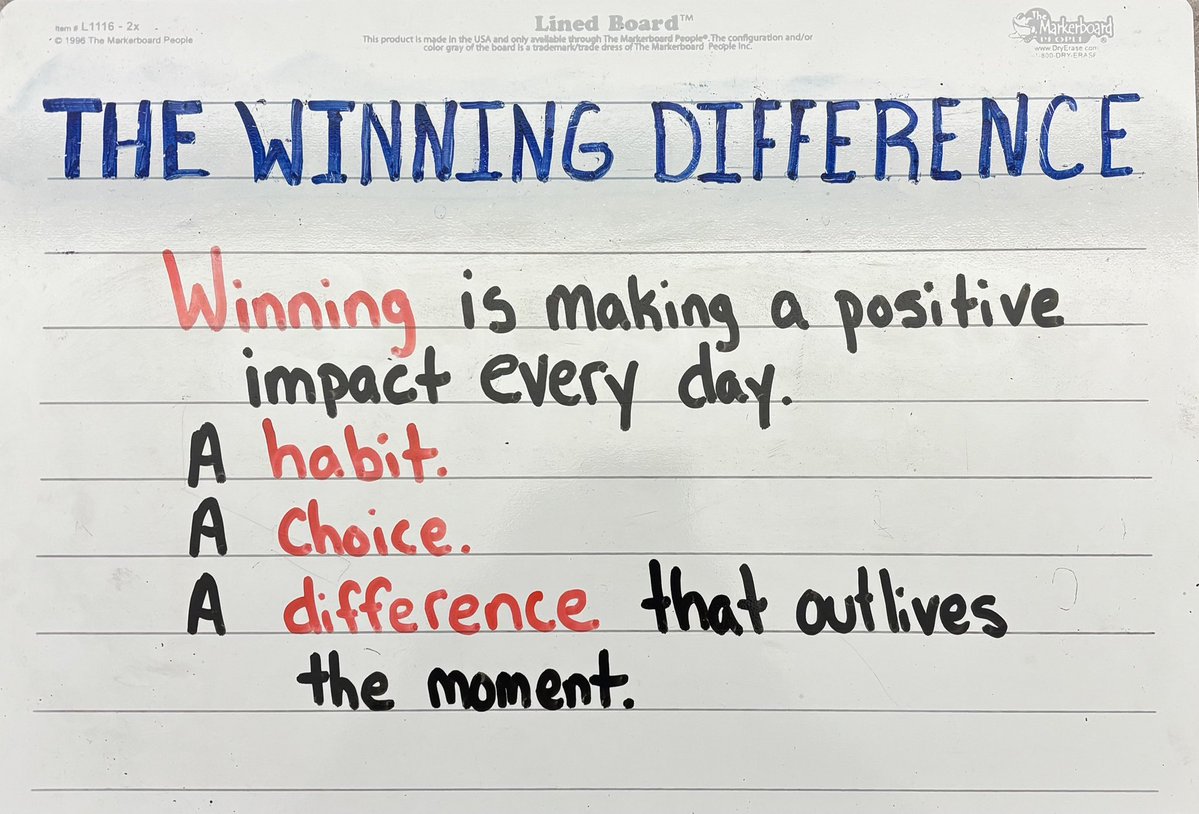 Item # L1116 - 2x
© 1996 The Markerboard People
Lined Board™
This product is made in the USA and only available through The Markerboard People®. The configuration and/or
color gray of the board is a trademark/trade dress of The Markerboard People Inc.
The Markerboard
PEOPLE®
www.DryErase.com
1-800-DRY-ERASE
THE WINNING DIFFERENCE
Winning is making a positive
impact every day.
A habit.
A Choice.
A difference that outlives
the moment.